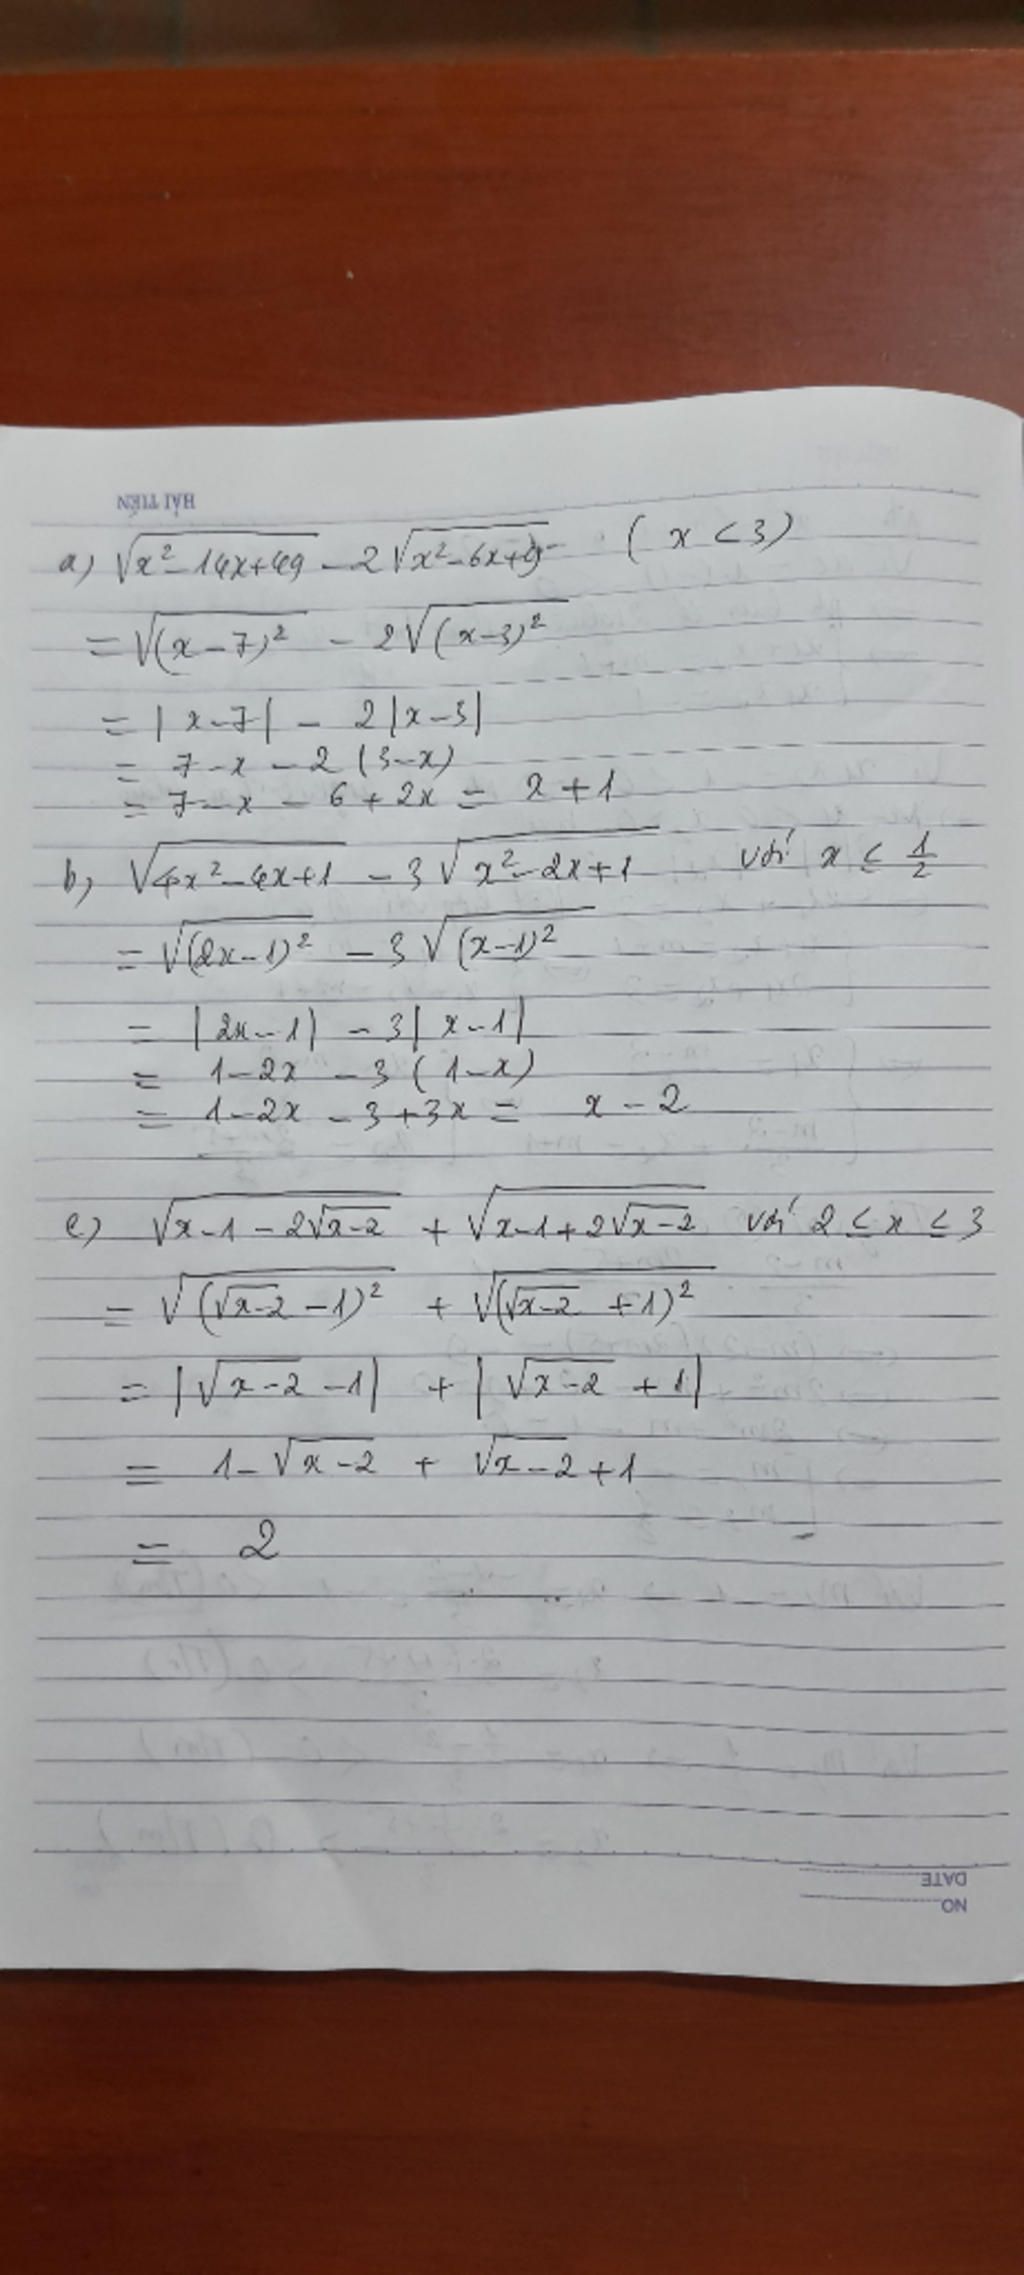 HẢI TIẾN
a) √(x² - 14x + 49) - 2√(x² - 6x + 9) ( x < 3)
= √((x - 7)²) - 2√((x - 3)²)
= |x - 7| - 2|x - 3|
= 7 - x - 2 (3 - x)
= 7 - x - 6 + 2x = x + 1
b) √(4x² - 4x + 1) - 3√(x² - 2x + 1) với x ≤ 1/2
= √((2x - 1)²) - 3√((x - 1)²)
= |2x - 1| - 3|x - 1|
= 1 - 2x - 3 (1 - x)
= 1 - 2x - 3 + 3x = x - 2
c) √(x - 1 - 2√(x - 2)) + √(x - 1 + 2√(x - 2)) với 2 ≤ x ≤ 3
= √((√(x - 2) - 1)²) + √((√(x - 2) + 1)²)
= |√(x - 2) - 1| + |√(x - 2) + 1|
= 1 - √(x - 2) + √(x - 2) + 1
= 2
DATE
NO